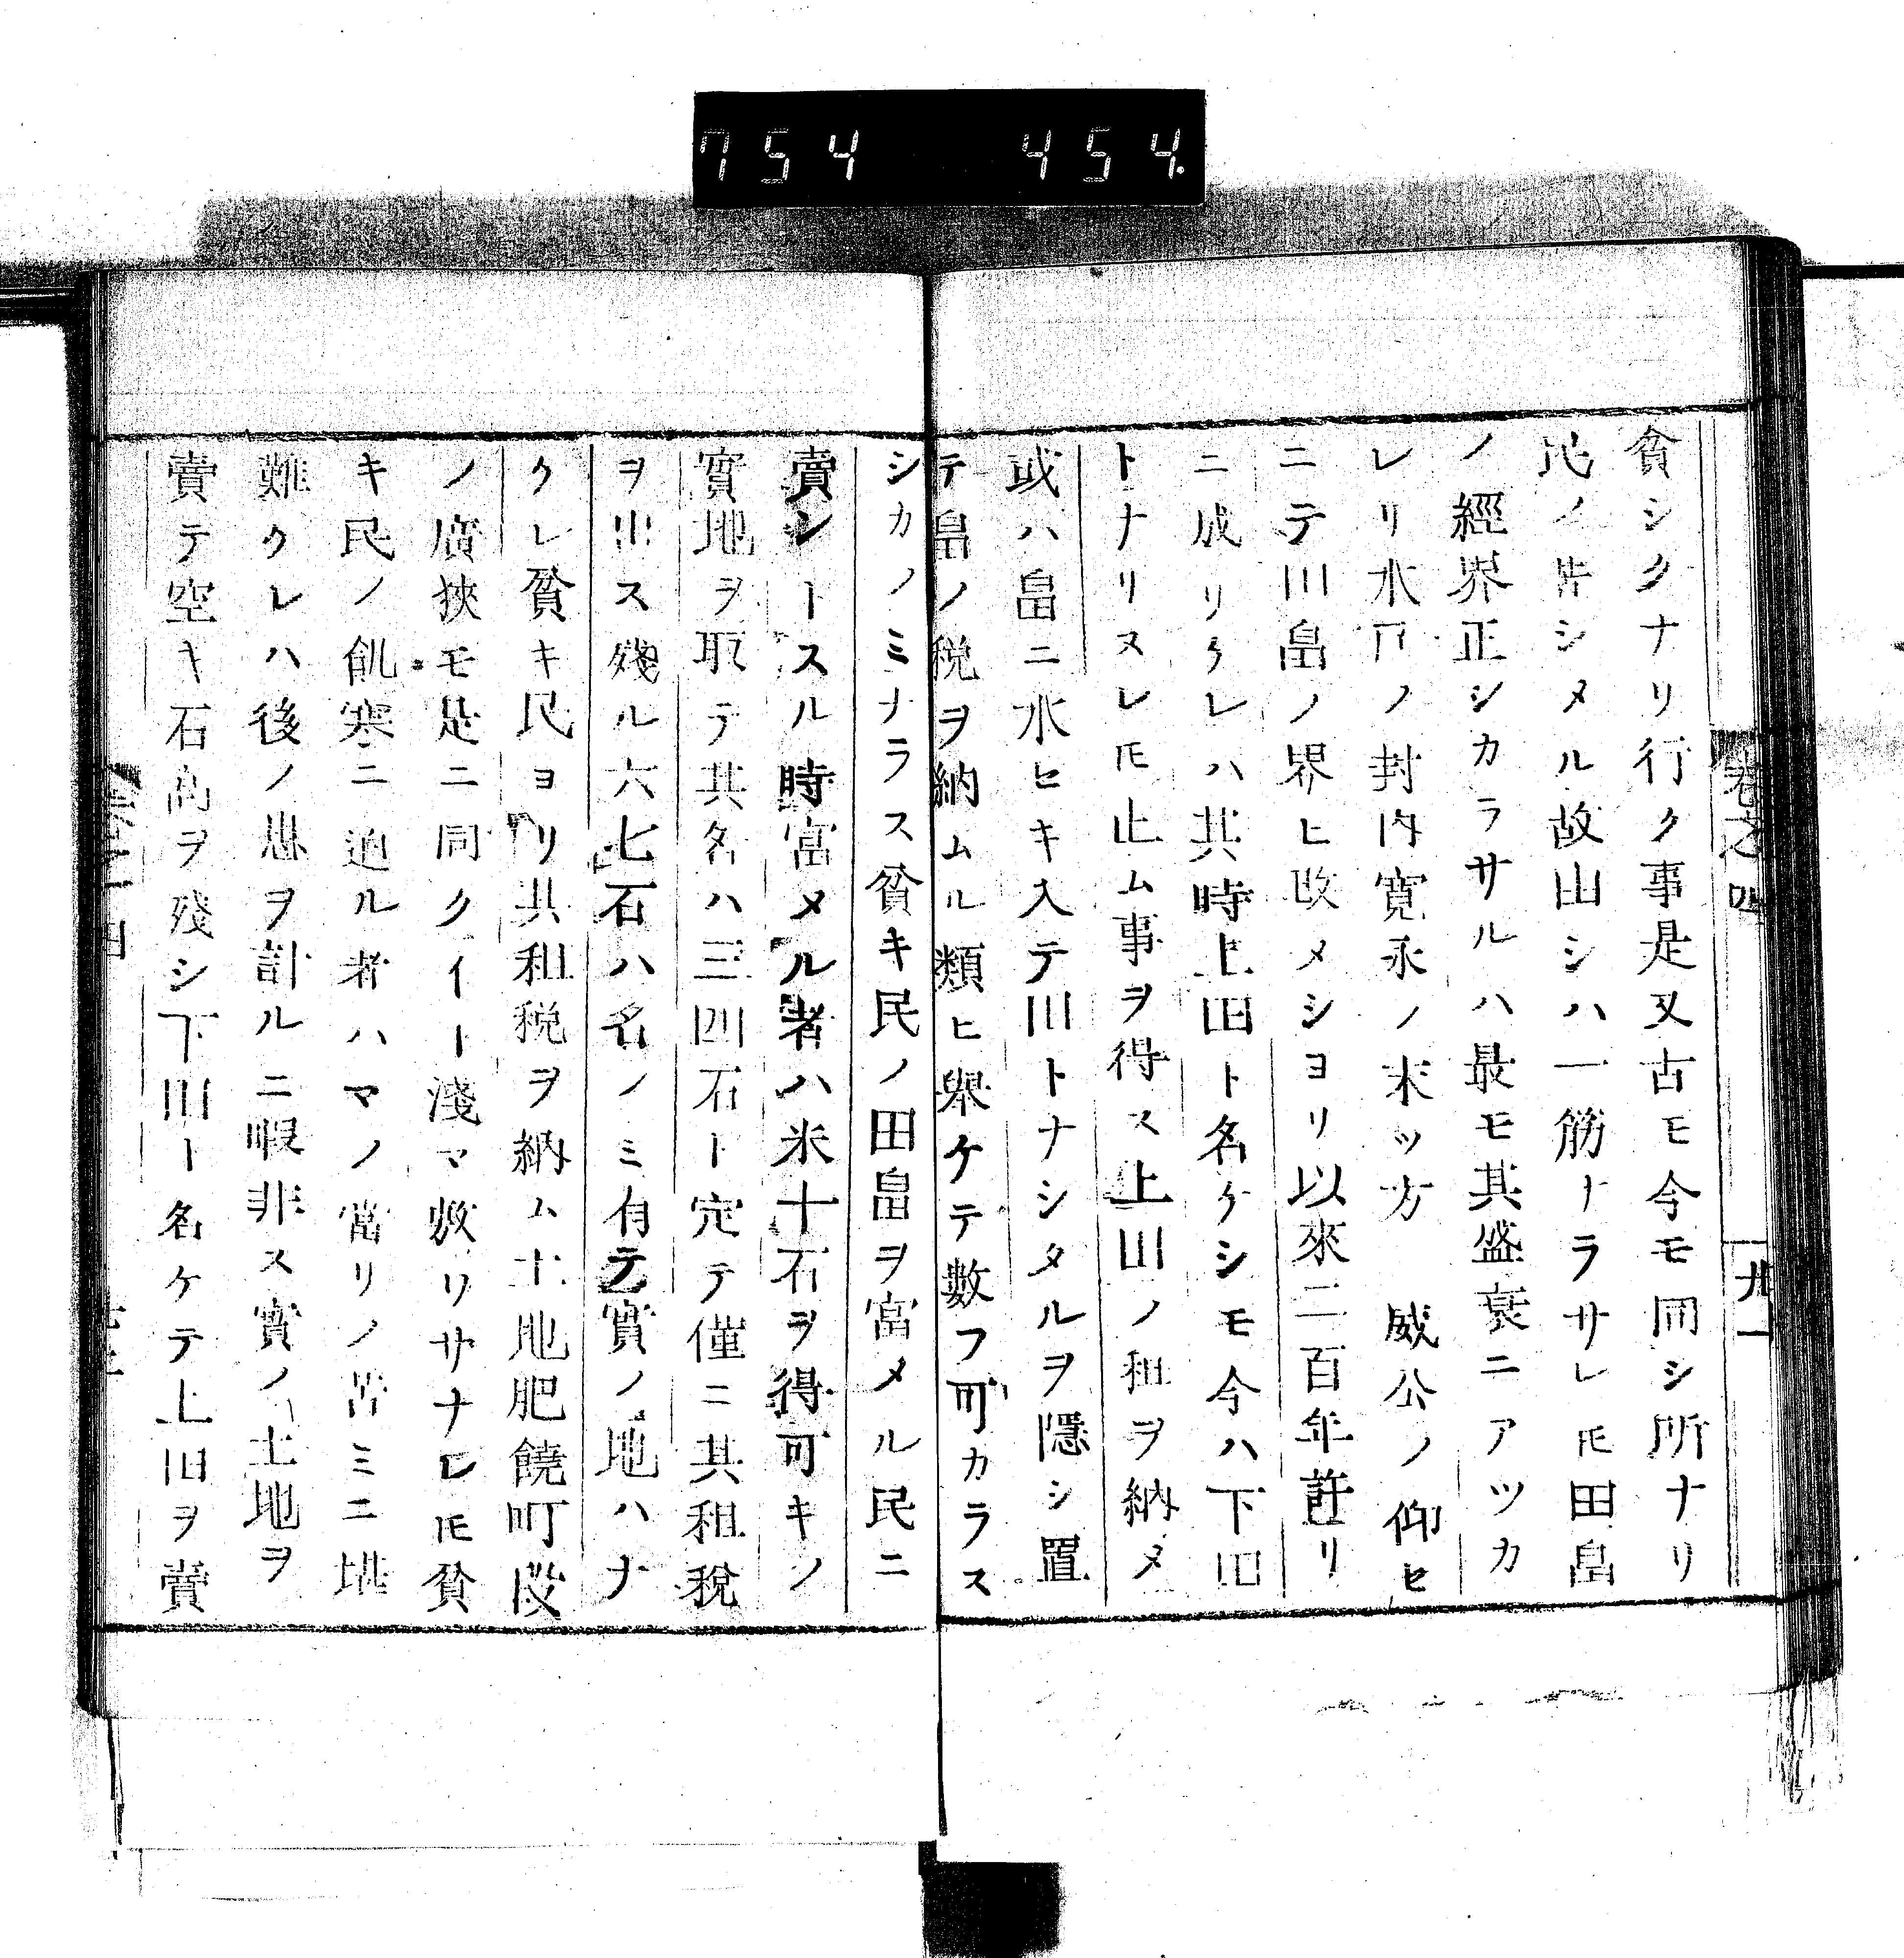 754 454
卷之四 廿一
貧シクナリ行ク事是又古モ今モ同シ所ナリ
民ノ苦シメル故由シハ一筋ナラサレ𪜈田畠
ノ經界正シカラサルハ最モ其盛衰ニアツカ
レリ水戸ノ封内寛永ノ末ッ方 威公ノ仰セ
ニテ田畠ノ界ヒ改メショリ以來二百年許リ
ニ成リケレハ其時上田ト名ケシモ今ハ下田
トナリヌレ𪜈止ム事ヲ得ス上田ノ租ヲ納メ
或ハ畠ニ水ヒキ入テ田トナシタルヲ隱シ置
テ畠ノ税ヲ納ムル類ヒ舉ケテ數フ可カラス
シカノミナラス貧キ民ノ田畠ヲ富メル民ニ
賣ントスル時富メル者ハ米十石ヲ得可キノ
實地ヲ取テ其名ハ三四石ト定テ僅ニ其租税
ヲ出ス殘ル六七石ハ名ノミ有テ實ノ地ハナ
クレ貧キ民ヨリ其租税ヲ納ム土地肥饒町段
ノ廣狹モ是ニ同クイト淺マ敷リサナレ𪜈貧
キ民ノ飢寒ニ迫ル者ハマノ當リノ苦ミニ堪
難クレハ後ノ患ヲ計ルニ暇非ス實ノ土地ヲ
賣テ空キ石高ヲ殘シ下田ト名ケテ上田ヲ賣